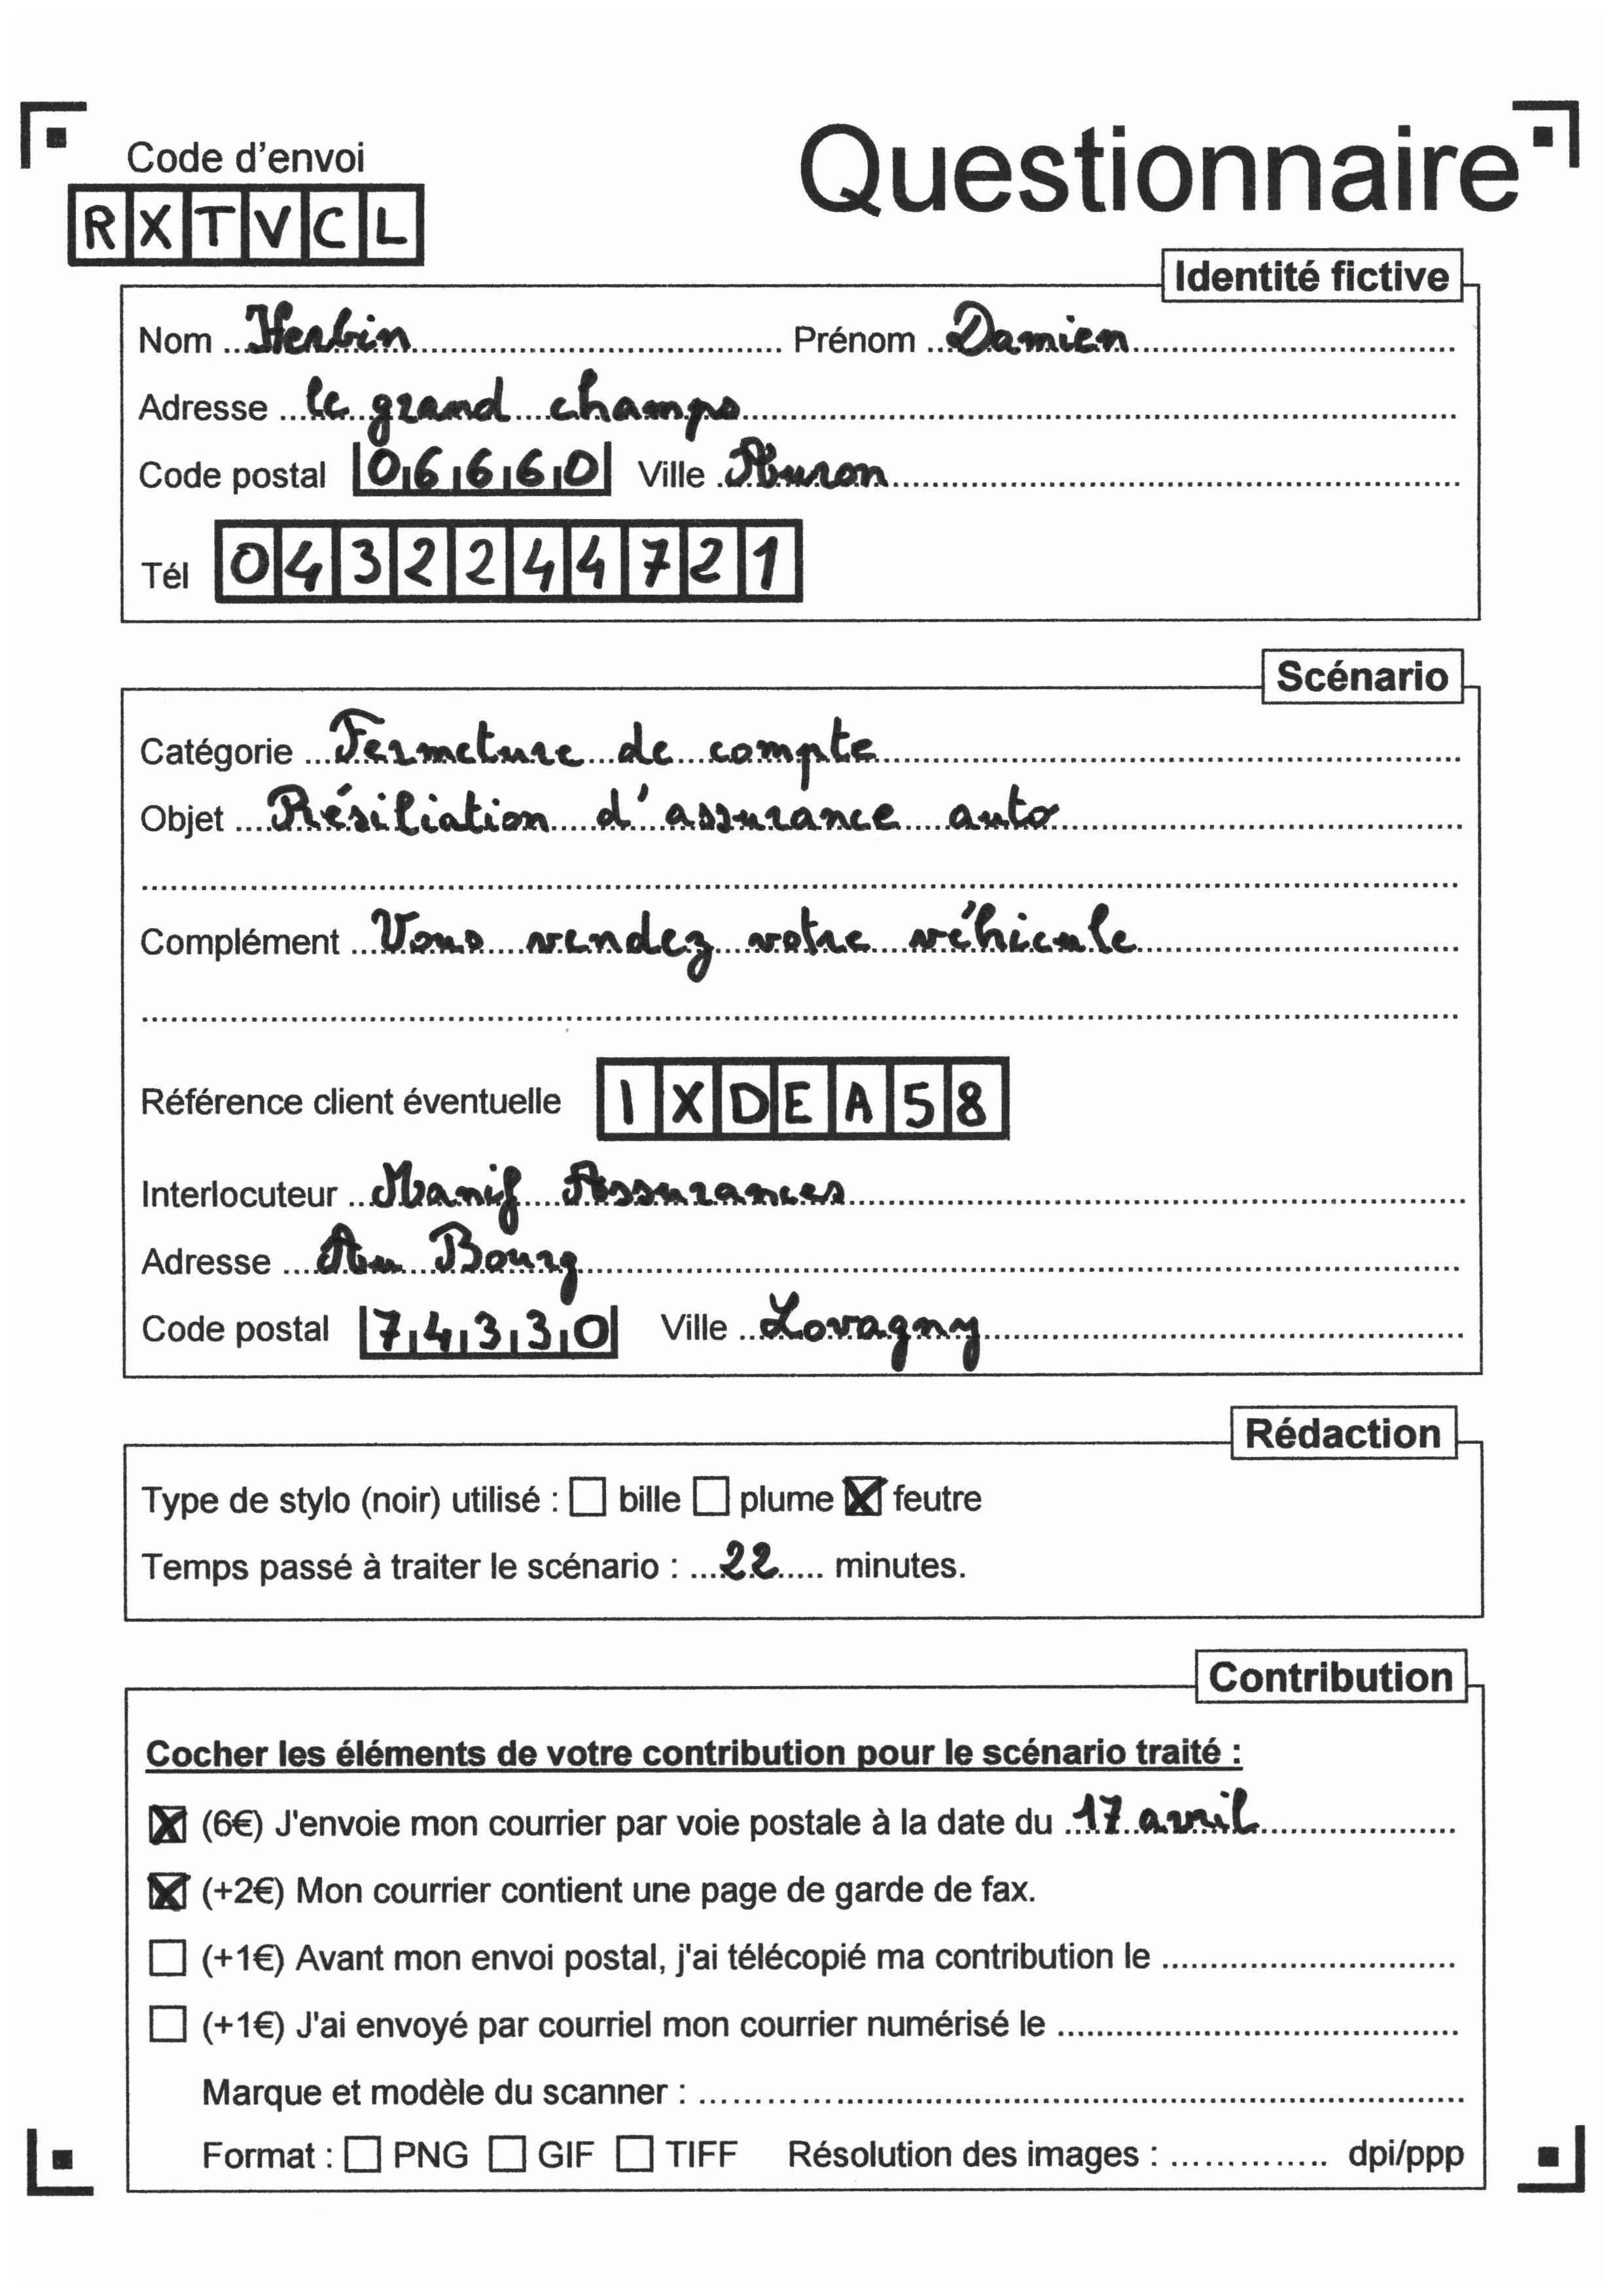 Code d'envoi
Questionnaire
RXTVCL
Identité fictive
Nom Herbin Prénom Damien
Adresse le grand champs
Code postal 06660 Ville Auron
Tél 0432244721
Scénario
Catégorie Fermeture de compte
Objet Résiliation d'assurance auto
Complément Vous vendez votre véhicule
Référence client éventuelle 1XDEA58
Interlocuteur Manif Assurances
Adresse Au Bourg
Code postal 74330 Ville Lovagny
Rédaction
Type de stylo (noir) utilisé : ☐ bille ☐ plume ☒ feutre
Temps passé à traiter le scénario : 22 minutes.
Contribution
Cocher les éléments de votre contribution pour le scénario traité :
☒ (6€) J'envoie mon courrier par voie postale à la date du 17 avril
☒ (+2€) Mon courrier contient une page de garde de fax.
☐ (+1€) Avant mon envoi postal, j'ai télécopié ma contribution le
☐ (+1€) J'ai envoyé par courriel mon courrier numérisé le
Marque et modèle du scanner :
Format : ☐ PNG ☐ GIF ☐ TIFF Résolution des images : dpi/ppp